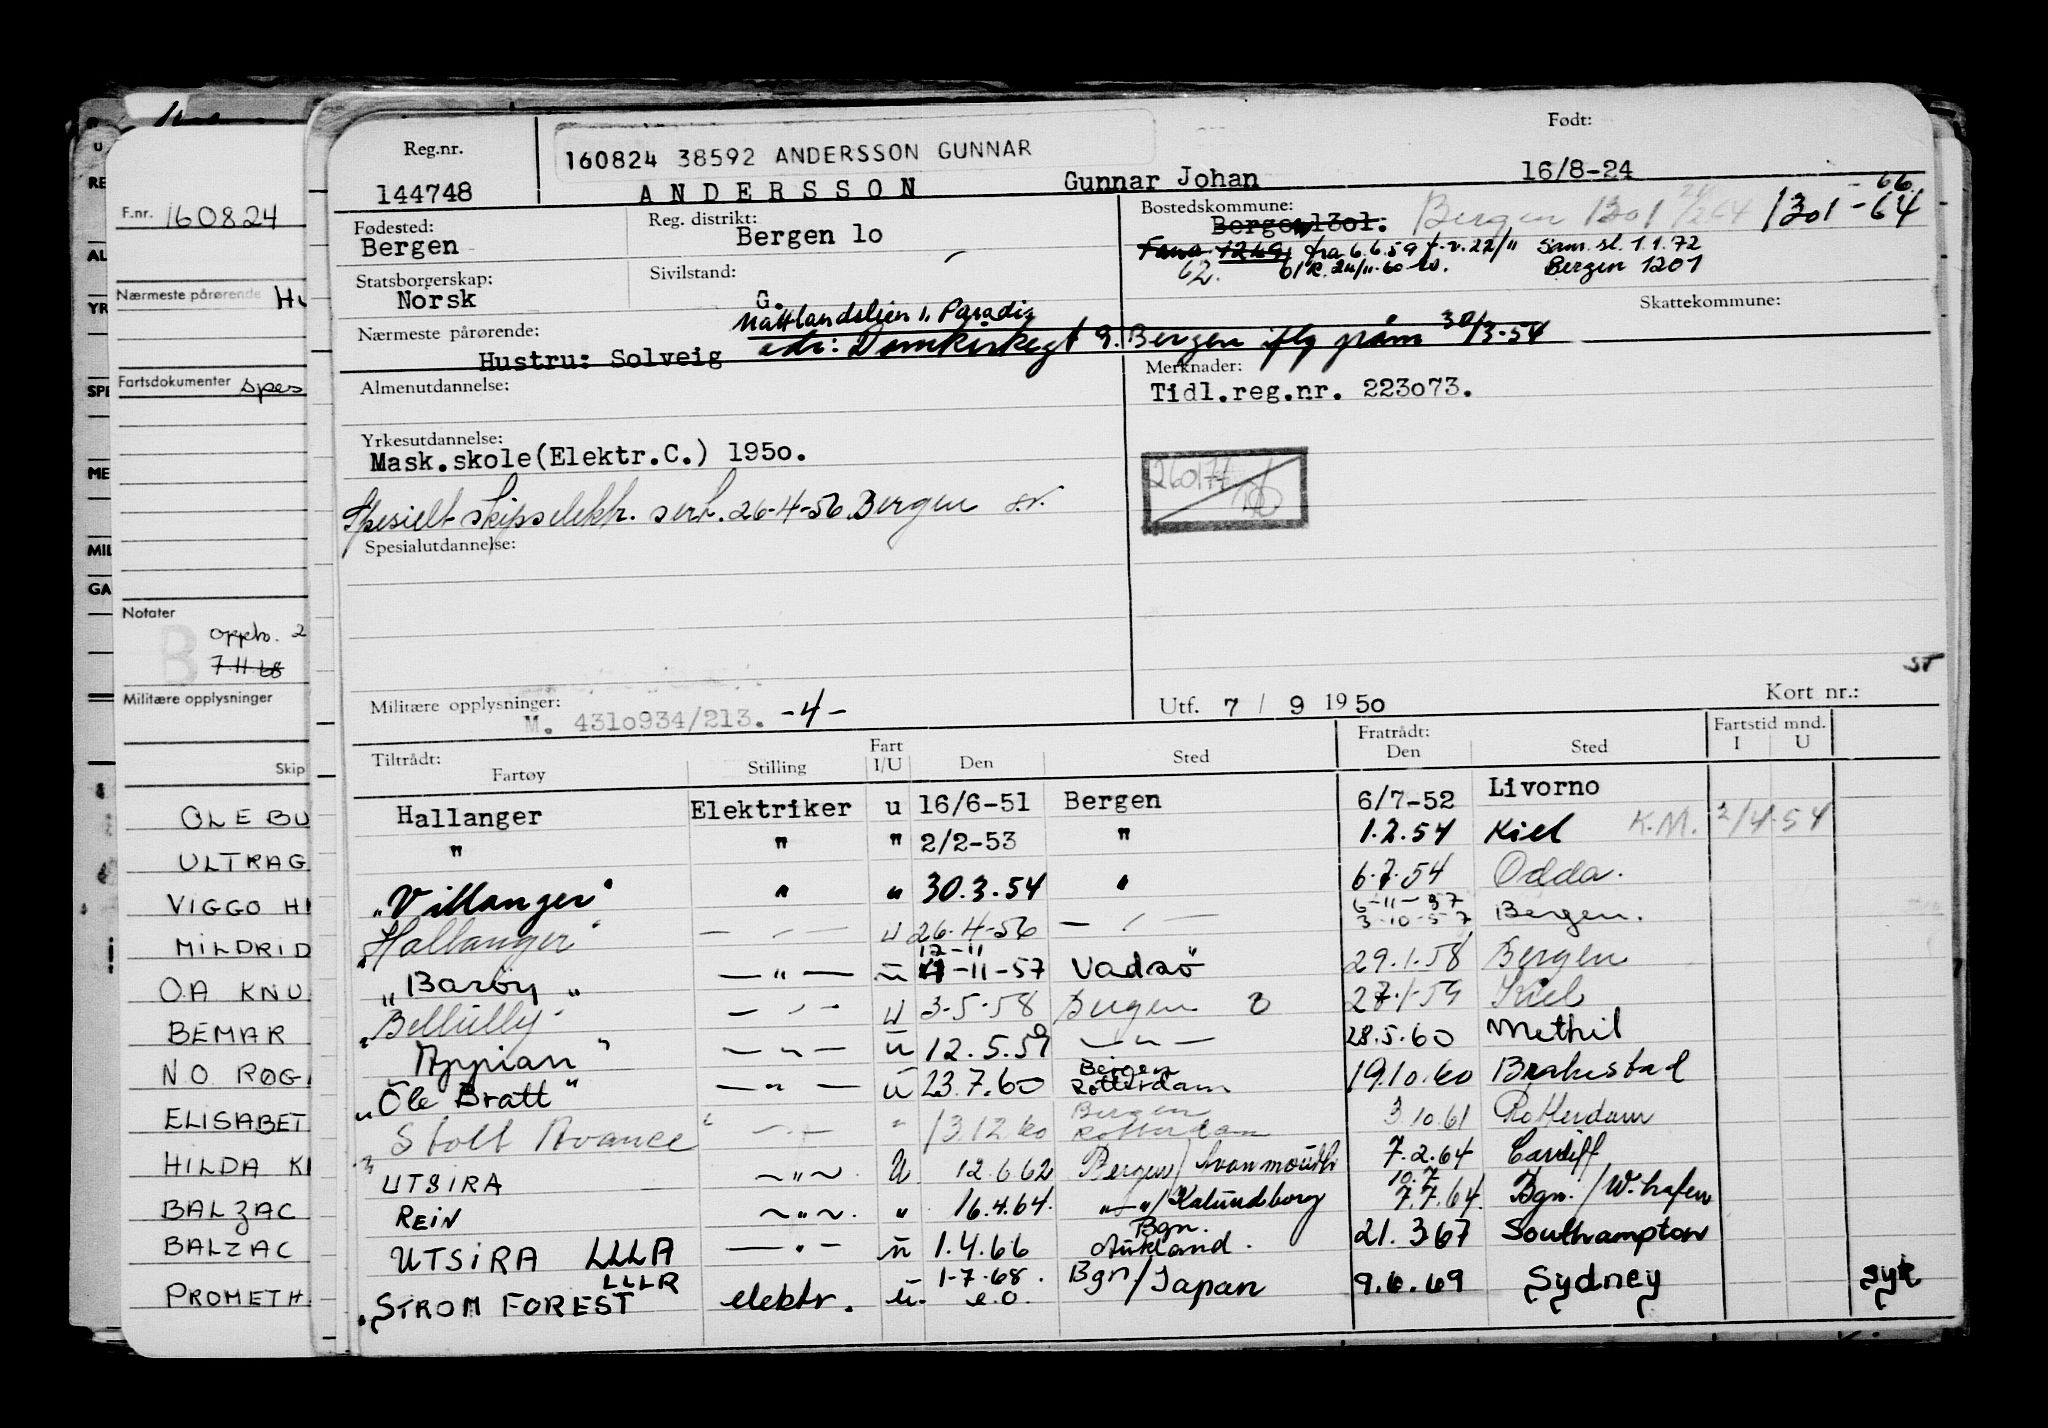 Reg.nr.
160824 38592 ANDERSSON GUNNAR
Født:
144748 ANDERSSON Gunnar Johan 16/8-24
Fødested: Bergen
Reg. distrikt: Bergen 1o
Bostedskommune: Bergen 1301. Bergen 1301 1301-64 -66
Fana 1249 fra 6.6.59 Sam. sl. 1.1.72
62. Bergen 1201
Statsborgerskap: Norsk
Sivilstand: G.
Skattekommune:
Nattlandslien 1, Paradis
Nærmeste pårørende: Hustru: Solveig adr: Domkirkegt 9. Bergen iflg påm 30/3-54
Almenutdannelse:
Merknader: Tidl.reg.nr. 223o73.
Yrkesutdannelse: Mask.skole(Elektr.C.) 195o.
Spesielt skipselektr. sert. 26-4-56 Bergen
Spesialutdannelse:
ST
Militære opplysninger: M. 431o934/213. -4-
Utf. 7 / 9 1950
Kort nr.:
Tiltrådt: Fartøy Stilling Fart I/U Den Sted Fratrådt: Den Sted Fartstid mnd. I U
Hallanger Elektriker u 16/6-51 Bergen 6/7-52 Livorno
" " " 2/2-53 " 1.2.54 Kiel K.M. 2/4.54
"Villanger" " " 30.3.54 " 6.7.54 Odda.
"Hallanger" — " — u 26-4-56 — " — 6-11-57 3-10-57 Bergen.
"Barøy" — " — u 12-11 -11-57 Vadsø 29.1.58 Bergen
"Bellully" — " — u 3-5-58 Bergen 27-1-59 Kiel
"Appian" — " — u 12.5.59 — " — 28.5.60 Methil
"Ole Bratt" — " — u 23.7.60 Bergen Rotterdam 19.10.60 Brahestad
"Stolt Avance" — " — " 13.12.60 Bergen Rotterdam 3.10.61 Rotterdam
UTSIRA ~ " ~ U 12.6.62 Bergen/Avonmouth 7.2.64 Cardiff
REIN ~ " ~ " 16.4.64. — " —/Kalundborg 10.7 7.7.64. Bgn./W.hafen
UTSIRA LLLA — " — u 1.4.66 Bgn. Aukland. 21.3.67 Southampton
"STROM FOREST LLLR elektr. u. 1-7-68. e.o. Bgn/Japan 9.6.69 Sydney syk
F.nr. 160824
Nærmeste pårørende
Fartsdokumenter spes
Notater
oppb. 2
7.11.68
Militære opplysninger
Skip
OLE BU
ULTRAG
VIGGO H
MILDRID
O.A KNU
BEMAR
N.O ROG
ELISABET
HILDA K
BALZAC
BALZAC
PROMETH
RE
AL
YR
SPE
ME
MIL
GA